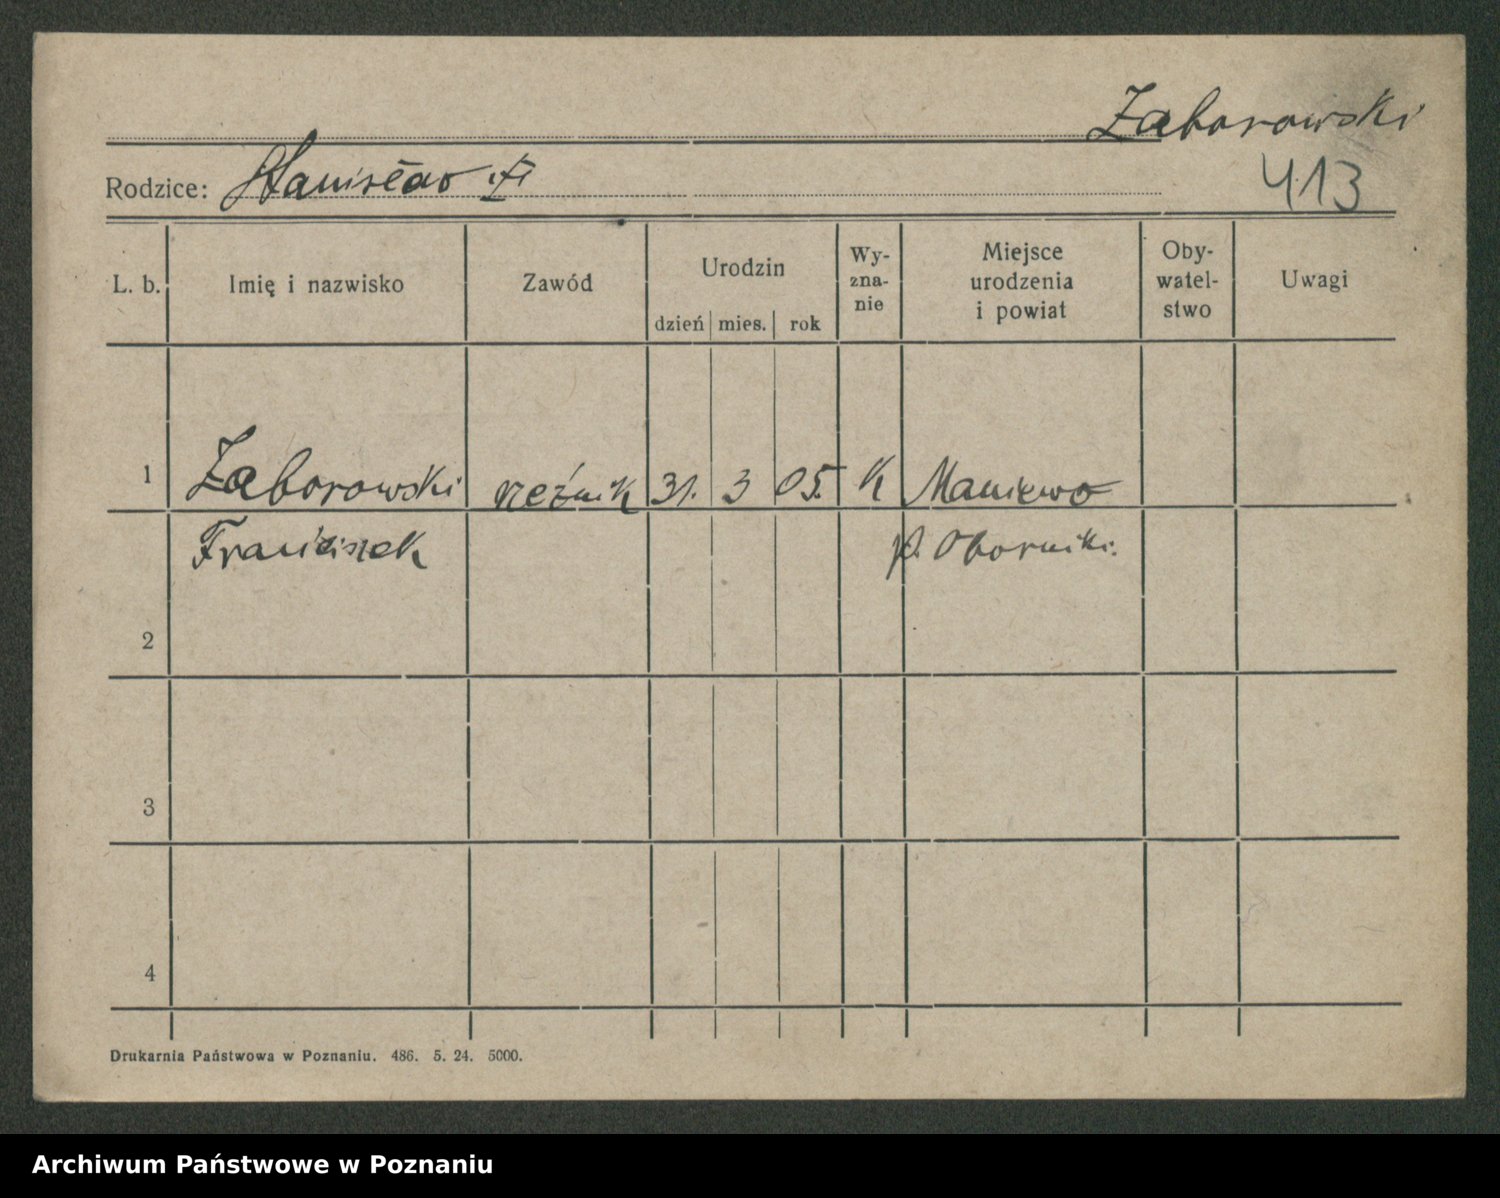 Zaborowski
Rodzice: Stanisław
413
L. b. Imię i nazwisko Zawód Urodzin dzień mies. rok Wy-zna-nie Miejsce urodzenia i powiat Oby-watel-stwo Uwagi
1 Zaborowski rzeźnik 31. 3 05. K Maniewo
Franciszek p. Oborniki.
2
3
4
Drukarnia Państwowa w Poznaniu. 486. 5. 24. 5000.
Archiwum Państwowe w Poznaniu